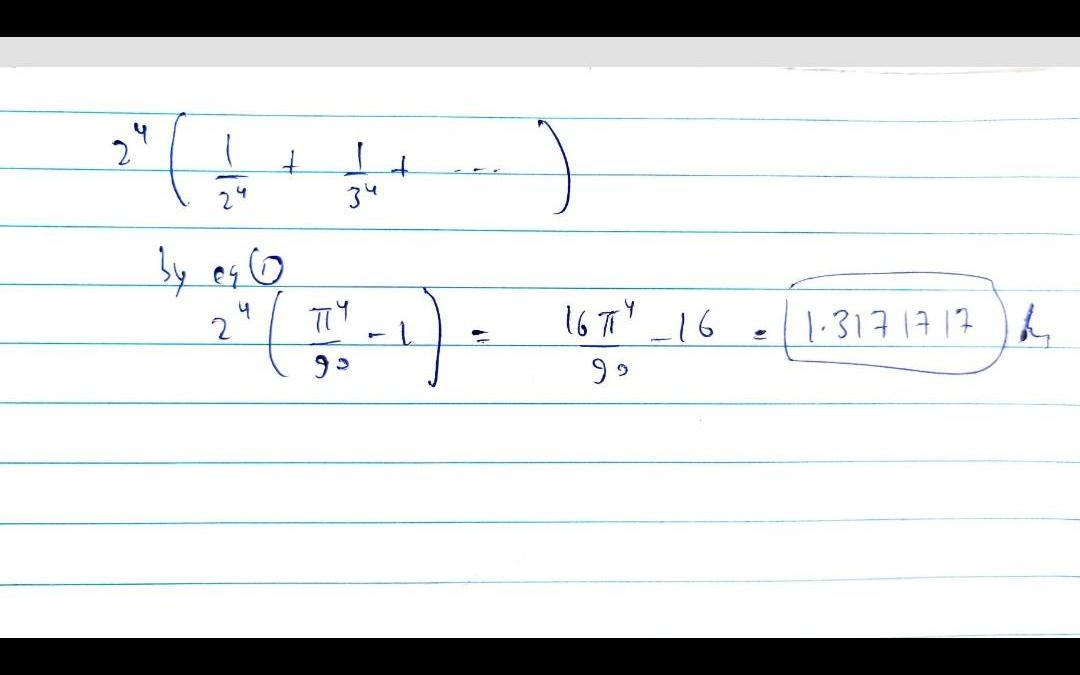 2⁴ ( 1/2⁴ + 1/3⁴ + ... )
by eq ①
2⁴ ( π⁴/90 - 1 ) = 16π⁴/90 - 16 = 1.3171717